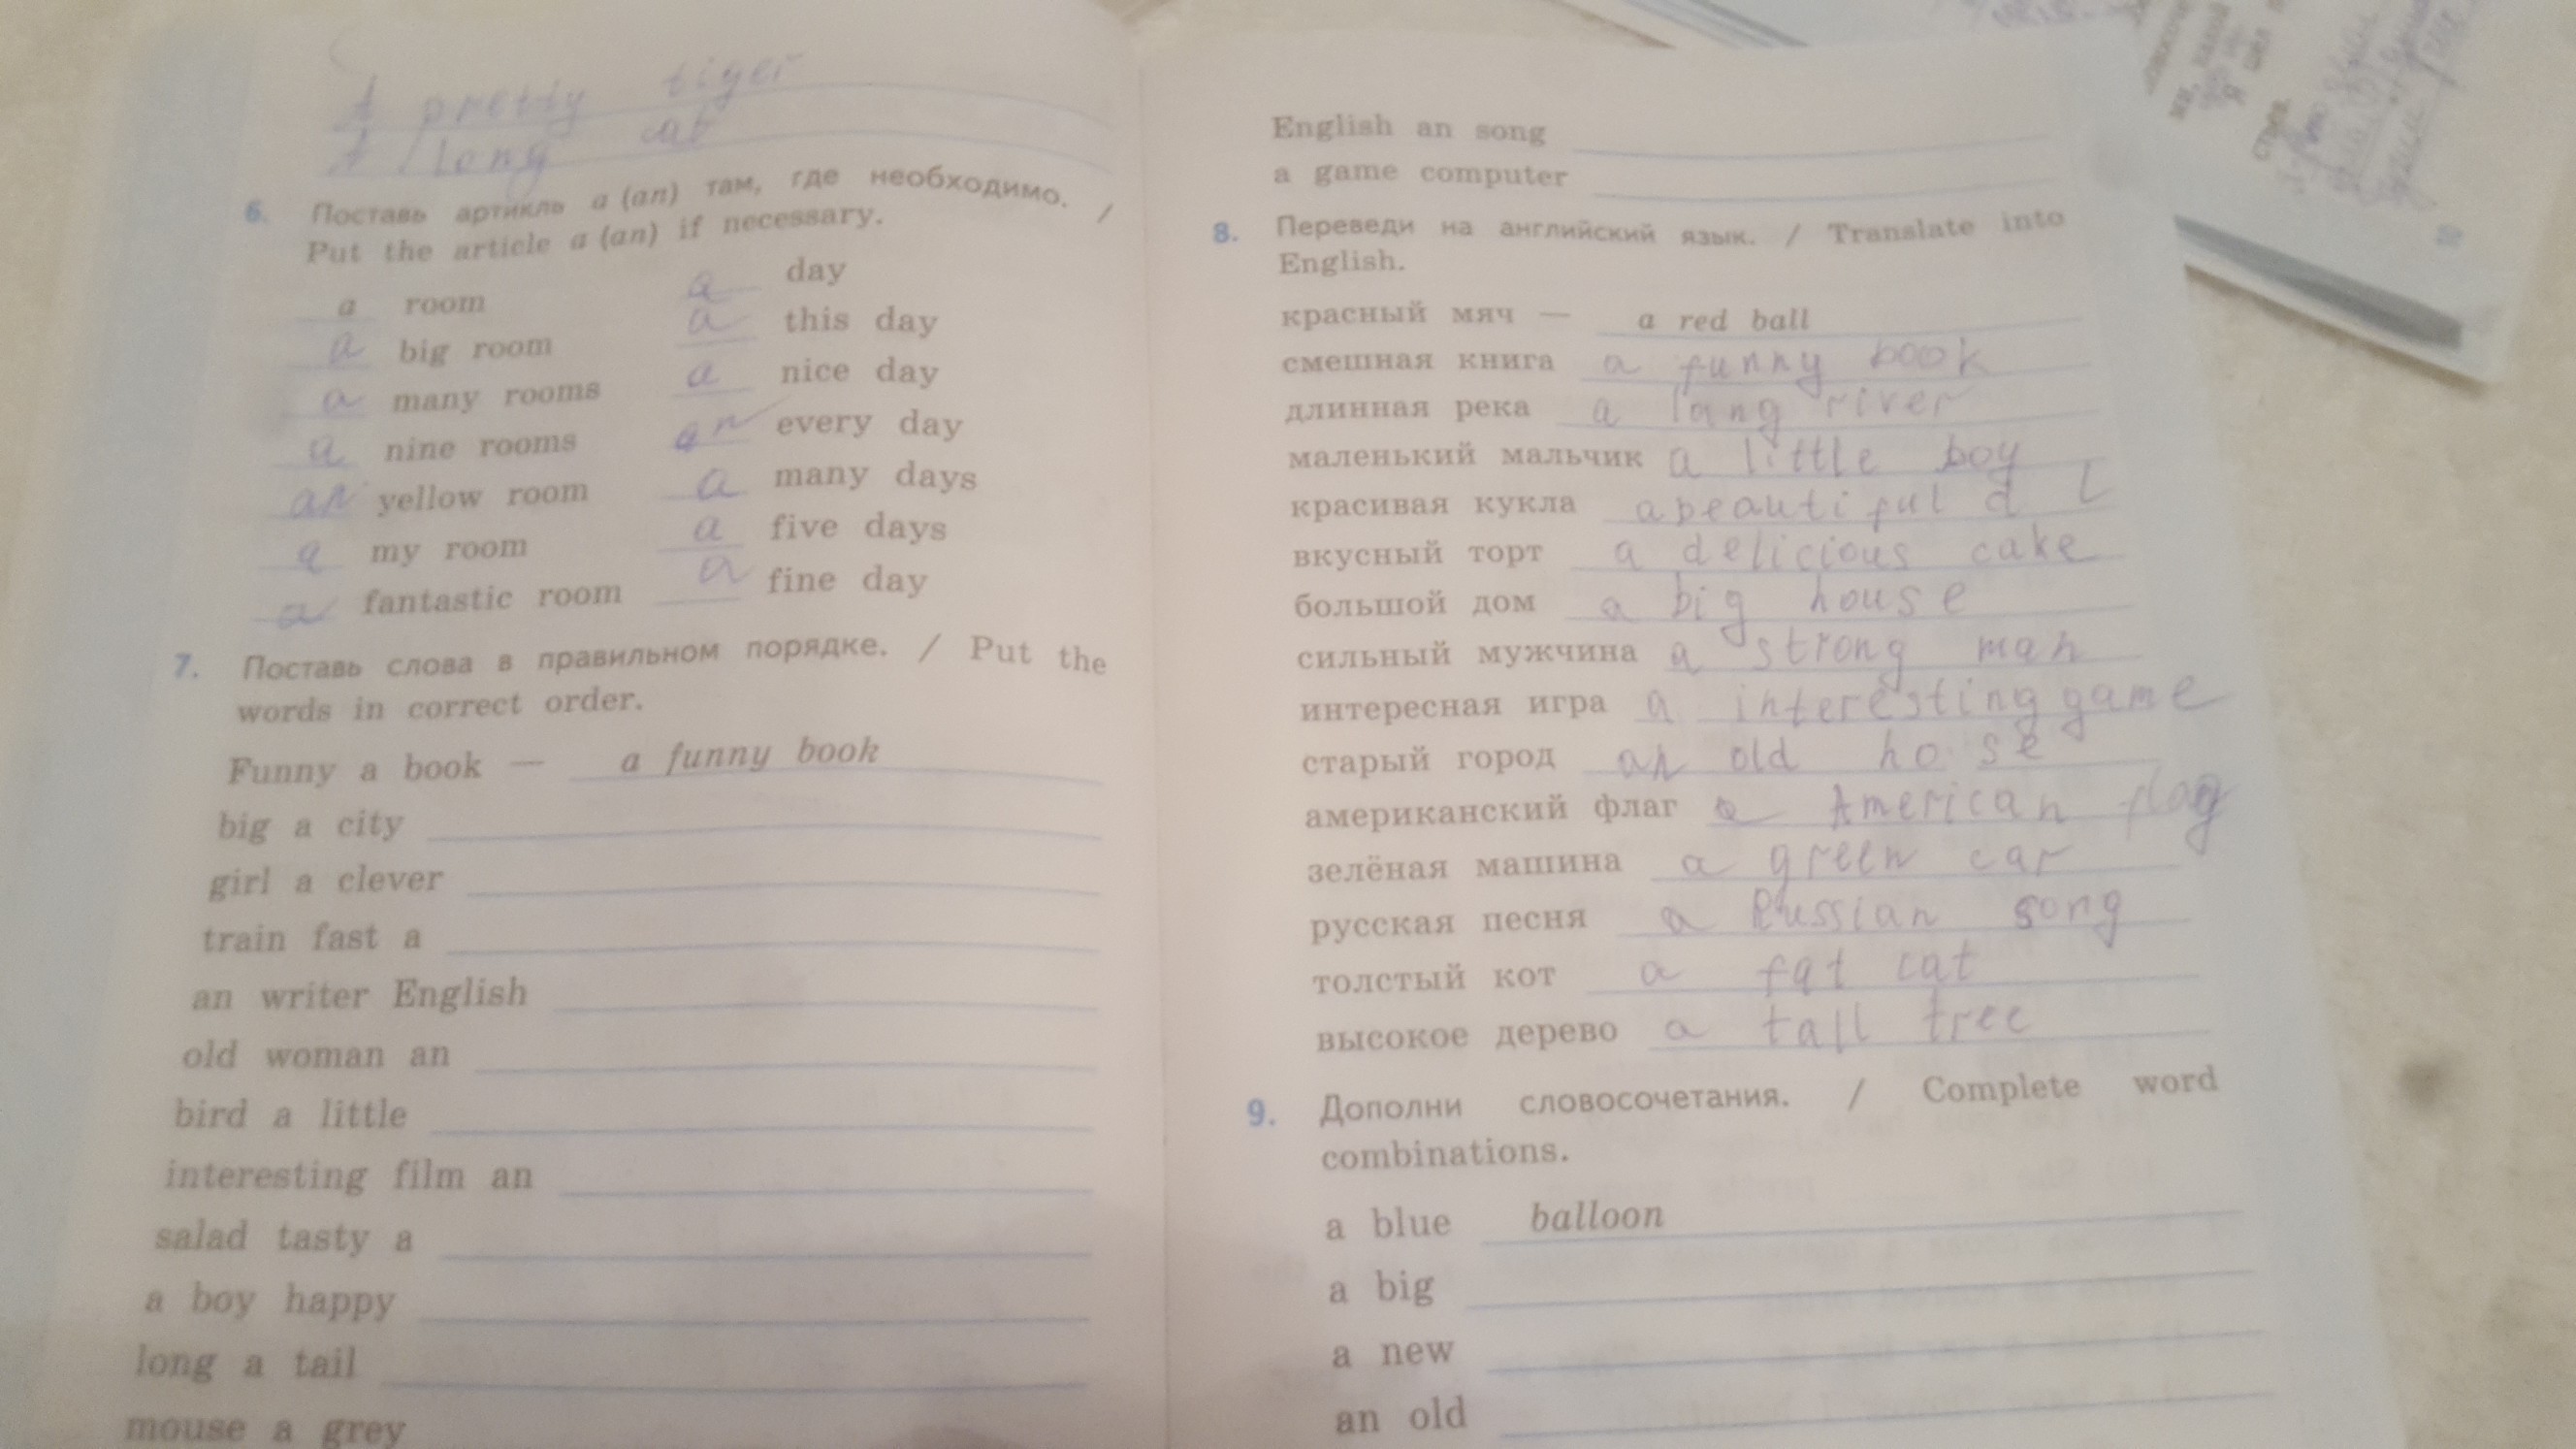 A pretty tiger
A long cat
6. Поставь артикль a (an) там, где необходимо. /
Put the article a (an) if necessary.
a room
a big room
a many rooms
a nine rooms
an yellow room
a my room
a fantastic room
a day
a this day
a nice day
an every day
a many days
a five days
a fine day
7. Поставь слова в правильном порядке. / Put the
words in correct order.
Funny a book — a funny book
big a city
girl a clever
train fast a
an writer English
old woman an
bird a little
interesting film an
salad tasty a
a boy happy
long a tail
mouse a grey
English an song
a game computer
8. Переведи на английский язык. / Translate into
English.
красный мяч — a red ball
смешная книга a funny book
длинная река a lang river
маленький мальчик a little boy
красивая кукла a beautiful d l
вкусный торт a delicious cake
большой дом a big house
сильный мужчина a strong man
интересная игра a interesting game
старый город an old ho se
американский флаг a American flag
зелёная машина a green car
русская песня a Russian song
толстый кот a fat cat
высокое дерево a tall tree
9. Дополни словосочетания. / Complete word
combinations.
a blue balloon
a big
a new
an old